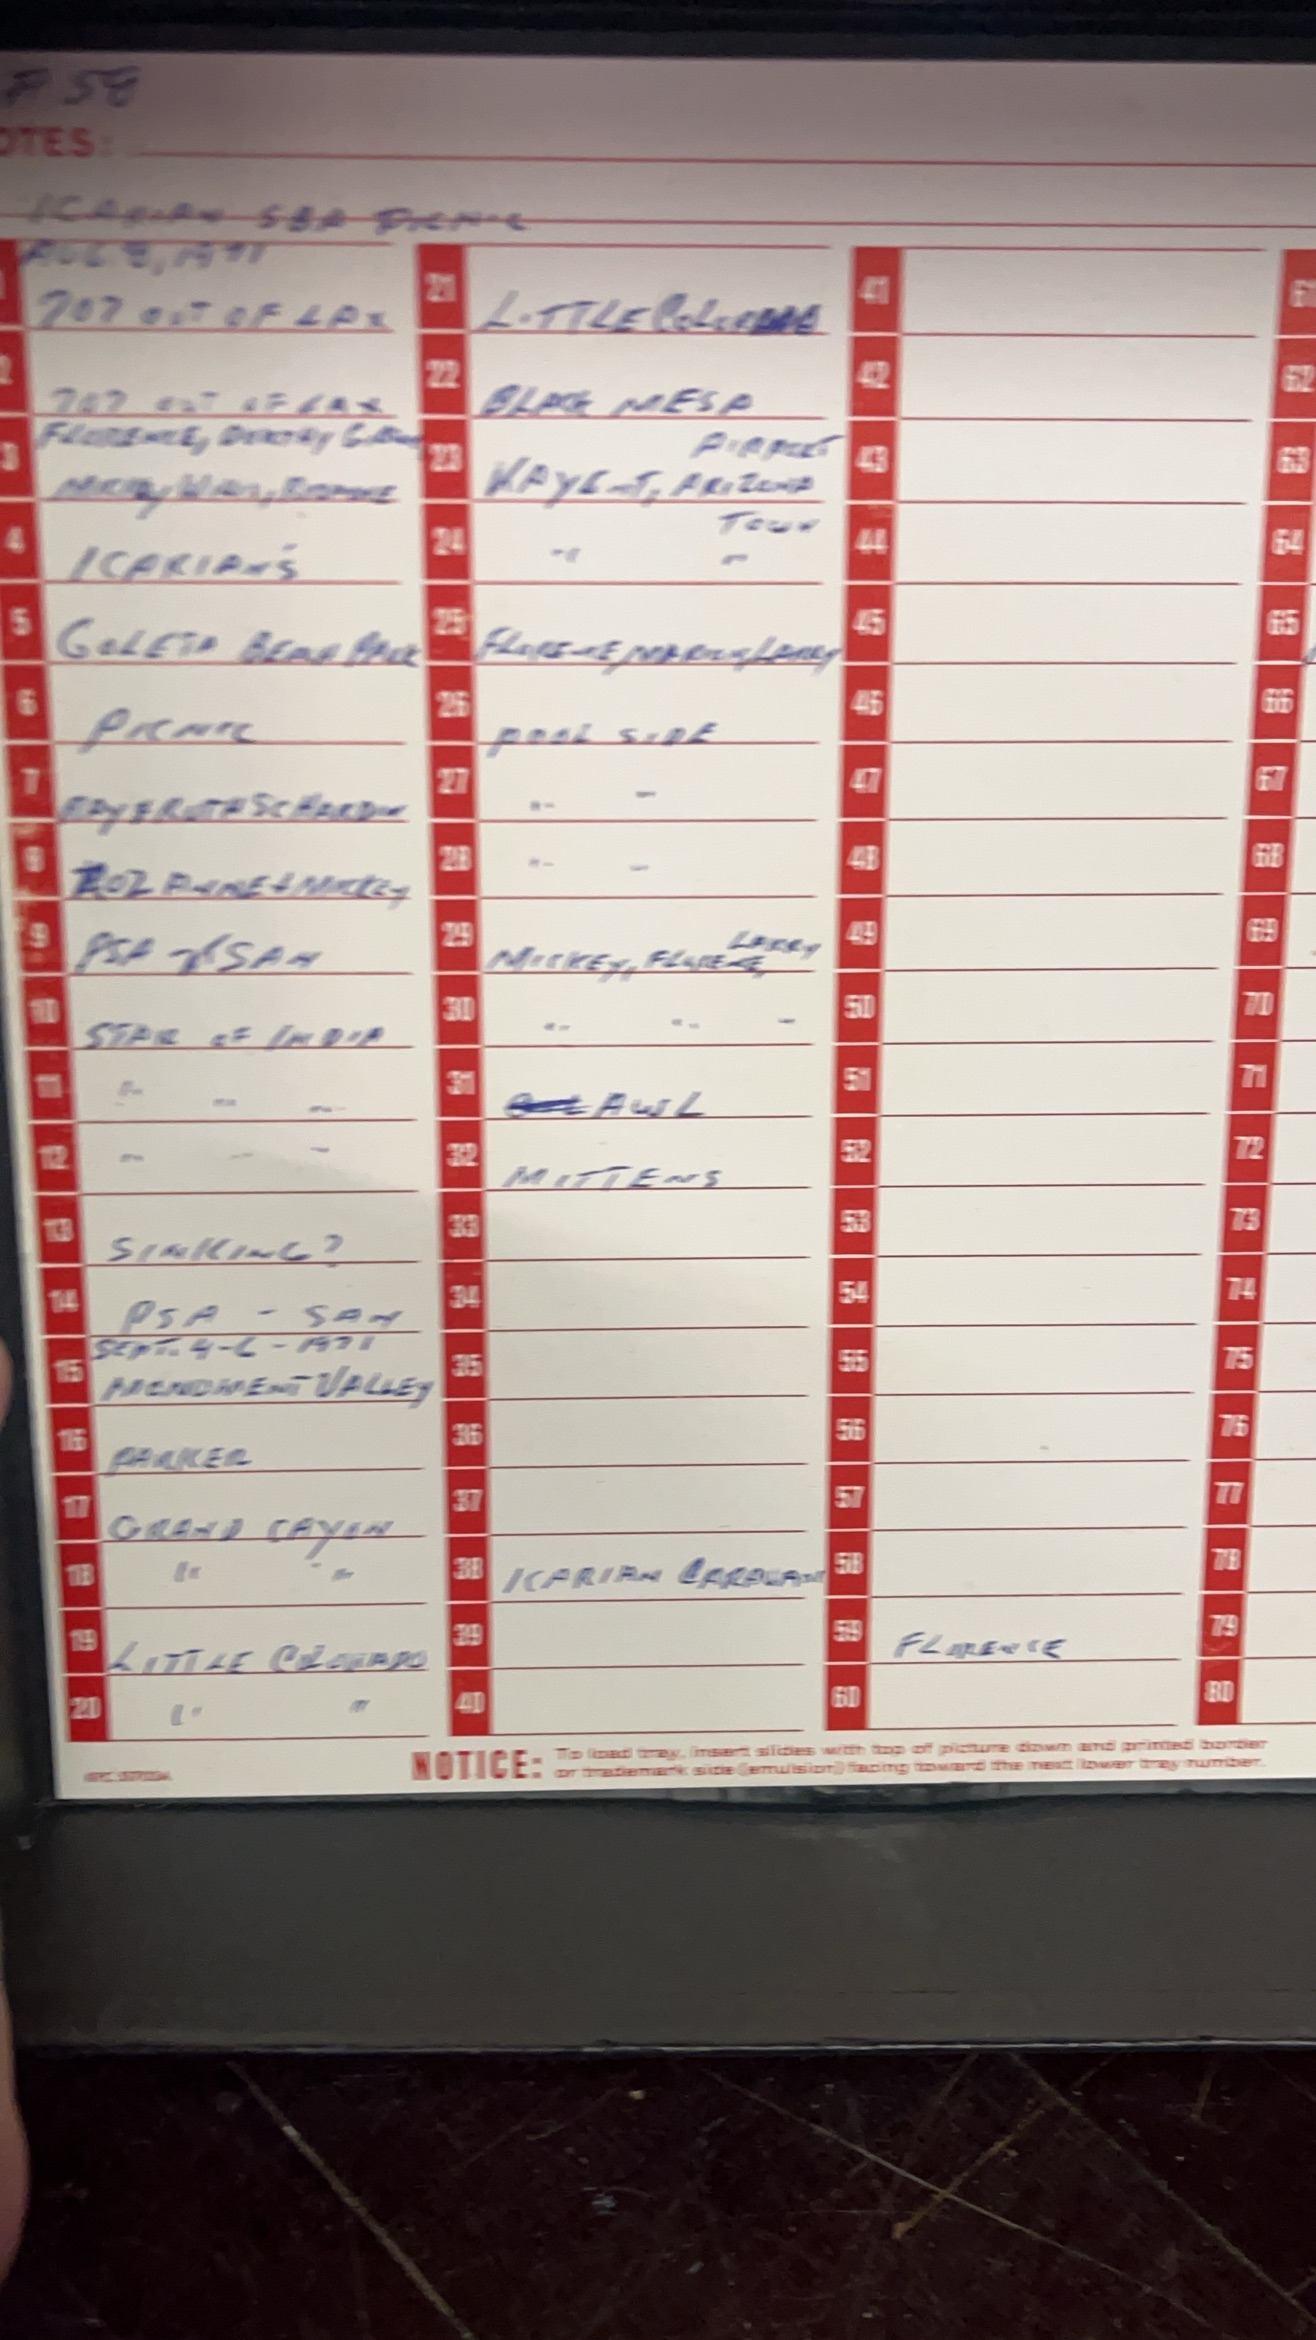 58
NOTES:
ICARIAN SBA PICNIC
AUG. 8, 1971
707 OUT OF LAX
2
707 OUT OF LAX
3
FLORENCE,
4
ICARIANS
5
GOLETA BEACH PARK
6
PICNIC
7
RAY & RUTH SCHARDIN
8
ROZ ANNE & MICKEY
9
PSA SAN
10
STAR OF INDIA
11
" " "
12
" " "
13
SINKING?
14
PSA - SAN
SEPT. 4-6-1971
15
MONUMENT VALLEY
16
PARKER
17
GRAND CAYON
18
" "
19
LITTLE COLORADO
20
" "
21
LITTLE COLORADO
22
BLACK MESA
23
AIRPORT
KAYENT, ARIZONA
24
TOWN
" "
25
FLORENE, MARION, LARRY
26
POOL SIDE
27
" "
28
" "
29
LARRY
MICKEY, FLORENE,
30
" " "
31
AWL
32
MITTENS
33
34
35
36
37
38
ICARIAN CARAVAN
39
40
41
42
43
44
45
46
47
48
49
50
51
52
53
54
55
56
57
58
59
FLORENCE
60
61
62
63
64
65
66
67
68
69
70
71
72
73
74
75
76
77
78
79
80
NOTICE: To load tray, insert slides with top of picture down and printed border
or trademark side (emulsion) facing toward the next lower tray number.